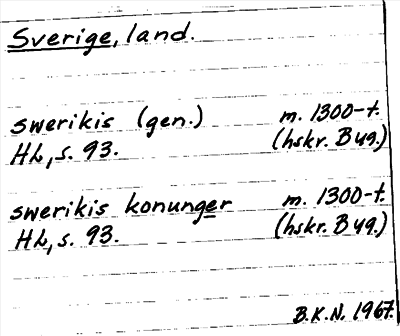 Sverige, land.
swerikis (gen.) m. 1300-t.
HL, s. 93. (hskr. B 49.)
swerikis konunger m. 1300-t.
HL, s. 93. (hskr. B 49.)
B.K.N. 1967.